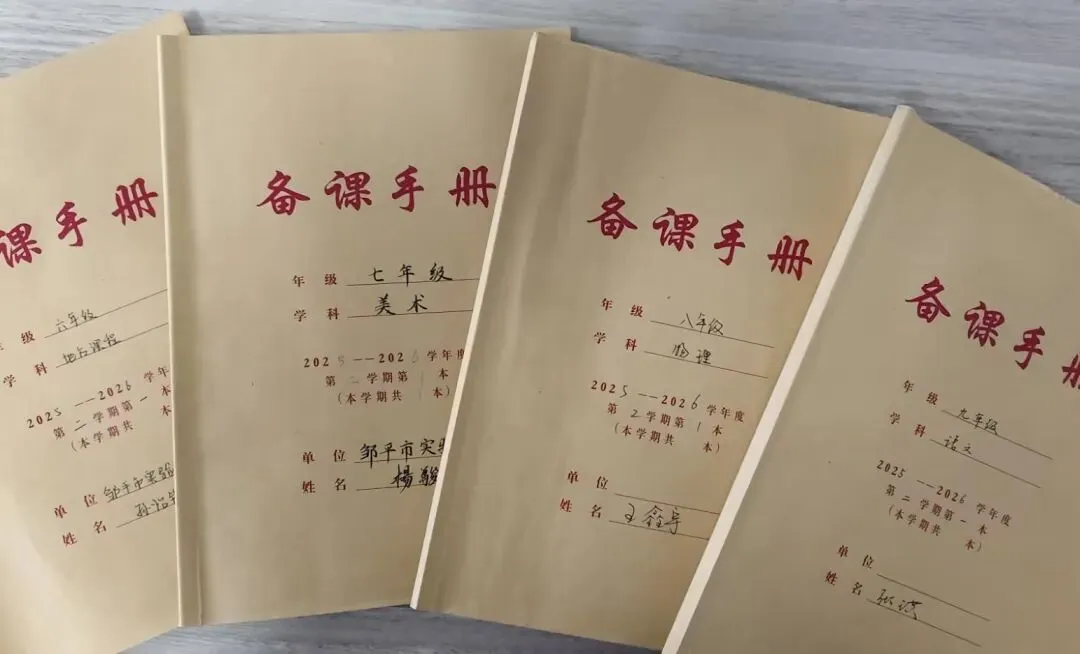 课手册
年 级 六年级
学 科 地方课程
2025--2026 学年度
第二学期第一本
(本学期共 本)
单 位 邹平市实验
姓 名 孙
备课手册
年 级 七年级
学 科 美术
2025--2026 学年度
第二学期第1本
(本学期共1本)
单 位 邹平市实验
姓 名 杨骏
备课手册
年 级 八年级
学 科 物理
2025--2026 学年度
第2学期第1本
(本学期共 本)
单 位
姓 名 王鑫宇
备课手册
年 级 九年级
学 科 语文
2025--2026 学年度
第二学期第一本
(本学期共 本)
单 位
姓 名 张